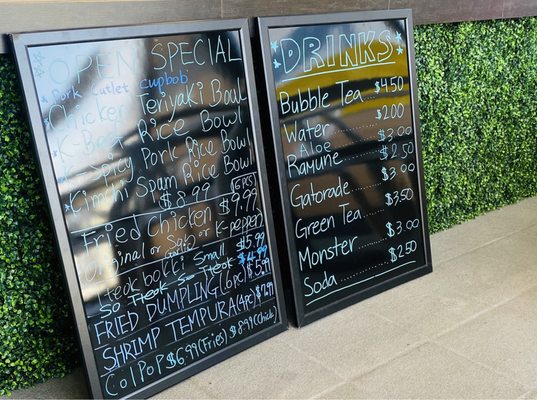 OPEN SPECIAL
Pork Cutlet cupbob
Chicken Teriyaki Bowl
K-Beef Rice Bowl
K-Spicy Pork Rice Bowl
Kimchi Spam Rice Bowl
$8.99
(6 PCS)
Fried Chicken $9.99
Original or Salt or K-pepper
Tteok bokki Small $5.99
So Tteok So Tteok $4.99
FRIED DUMPLING (6 pc) $5.99
SHRIMP TEMPURA (4 PC) $7.99
Col PoP $6.99 (Fries) $8.99 (Chick)
DRINKS
Bubble Tea $4.50
Water $2.00
Aloe $3.00
Ramune $2.50
Gatorade $3.00
Green Tea $3.50
Monster $3.00
Soda $2.50